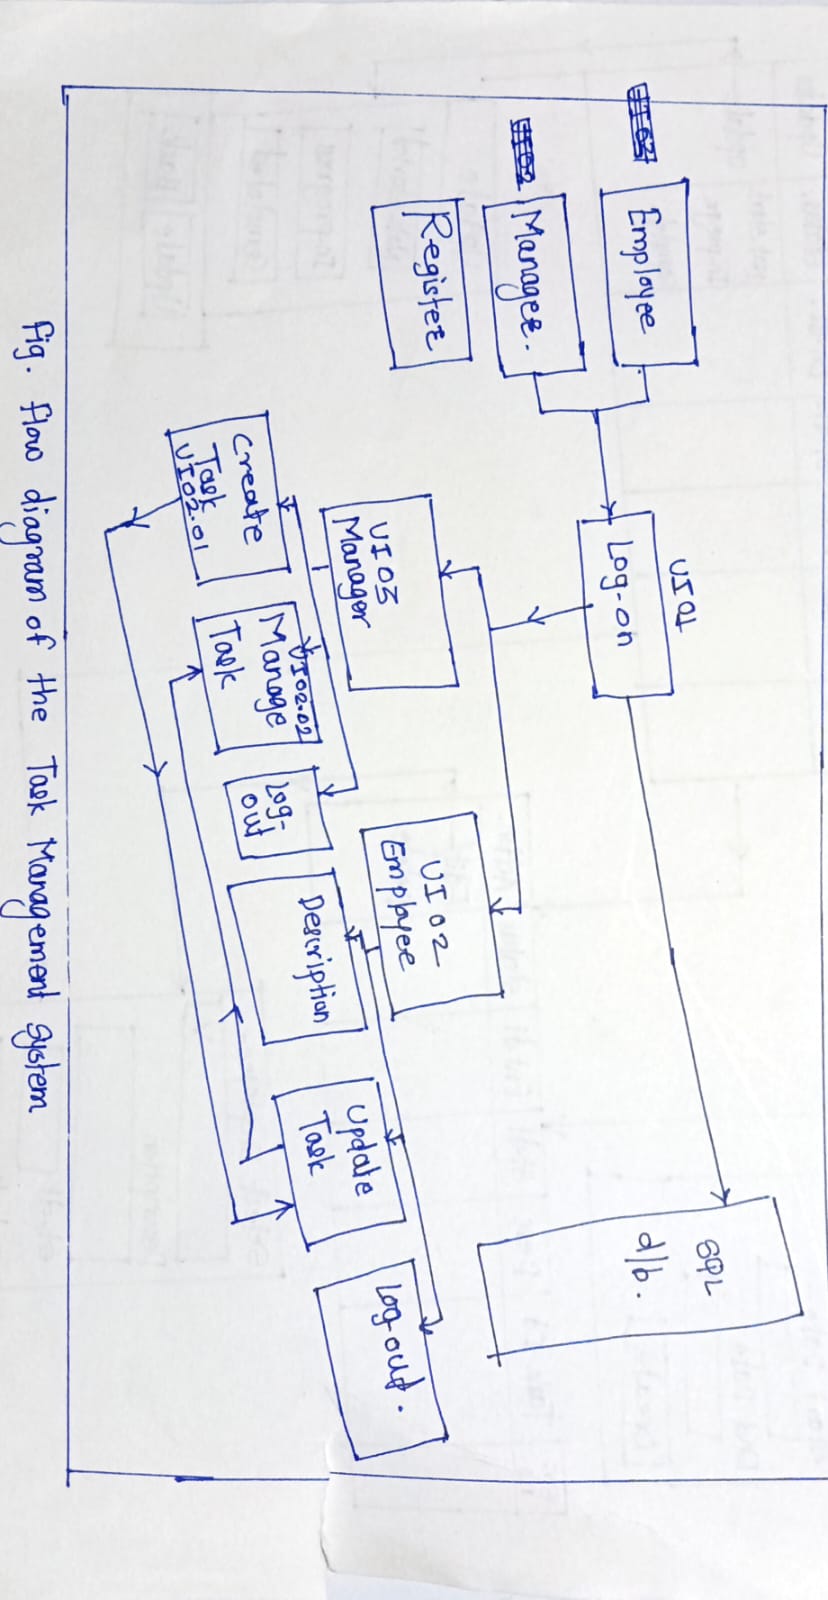 UI01
Employee
Log-on
SQL
d/b.
Manager.
Register
UI03
Manager
UI 02
Employee
Create
Task
UI02.01
UI02.02
Manage
Task
Log-
out
Description
Update
Task
Log-out.
fig. flow diagram of the Task Management System